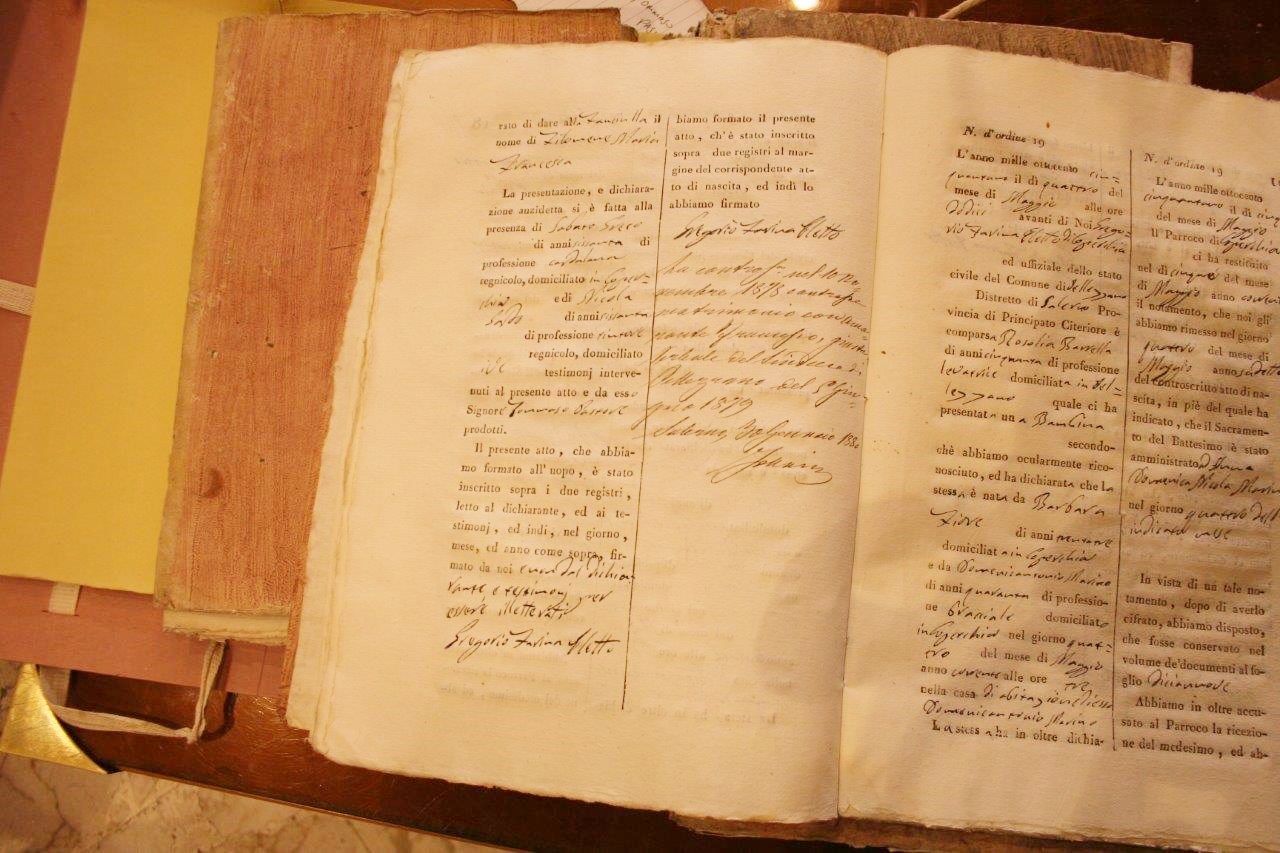 rato di dare alla fanciulla il
nome di Filomena Maria
Francesca
La presentazione, e dichiara-
zione anzidetta si è fatta alla
presenza di Sabato Greco
di anni sissanta di
professione
regnicolo, domiciliato in
e di Nicola
di anni sissanta
di professione
regnicolo, domiciliato
ivi testimonj interve-
nuti al presente atto e da esso
Signore Tommaso
prodotti.
Il presente atto, che abbia-
mo formato all' uopo, è stato
inscritto sopra i due registri,
letto al dichiarante, ed ai te-
stimonj, ed indi, nel giorno,
mese, ed anno come sopra, fir-
mato da noi dichia-
rante e testimonj per
essere illetterati
Gregorio Farina Eletto
biamo formato il presente
atto, ch'è stato inscritto
sopra due registri al mar-
gine del corrispondente at-
to di nascita, ed indi lo
abbiamo firmato
Gregorio Farina Eletto
ha nel 10 No
vembre 1878
matrimonio con
Francesco,
del Sindaco di
Pellezzano del
1879
Salerno, 30 Gennaio 1880
N. d'ordine 19
L'anno mille ottocento cin-
quantuno il dì quattro del
mese di Maggio alle ore
dodici avanti di Noi Grego-
rio Farina Eletto di Coperchia
ed uffiziale dello stato
civile del Comune di Pellezzano
Distretto di Salerno Pro-
vincia di Principato Citeriore è
comparsa Rosolia Barrella
di anni cinquanta di professione
levatrice domiciliata in Pel-
lezzano quale ci ha
presentata una Bambina
secondo-
chè abbiamo ocularmente rico-
nosciuto, ed ha dichiarata che la
stessa è nata da Barbara
Fiore
di anni trentatre
domiciliata in Coperchia
e da Domenicantonio Marino
di anni quaranta di professio-
ne Bracciale domiciliato
in Coperchia nel giorno quat-
tro del mese di Maggio
anno corrente alle ore tre
nella casa di abitazione di esso
Domenicantonio Marino
La stessa ha in oltre dichia-
N. d'ordine 19
L'anno mille ottocento
cinquantuno il dì cinque
del mese di Maggio
Il Parroco di Coperchia
ci ha restituito
nel dì cinque del mese
di Maggio anno
il notamento, che noi gli
abbiamo rimesso nel giorno
quattro del mese di
Maggio anno sudetto
del controscritto atto di na-
scita, in piè del quale ha
indicato, che il Sacramen-
to del Battesimo è stato
amministrato a
Domenica Nicola Maria
nel giorno quattro dell'
indicato mese
In vista di un tale no-
tamento, dopo di averlo
cifrato, abbiamo disposto,
che fosse conservato nel
volume de'documenti al fo-
glio diciannove
Abbiamo in oltre accu-
sato al Parroco la ricezio-
ne del medesimo, ed ab-